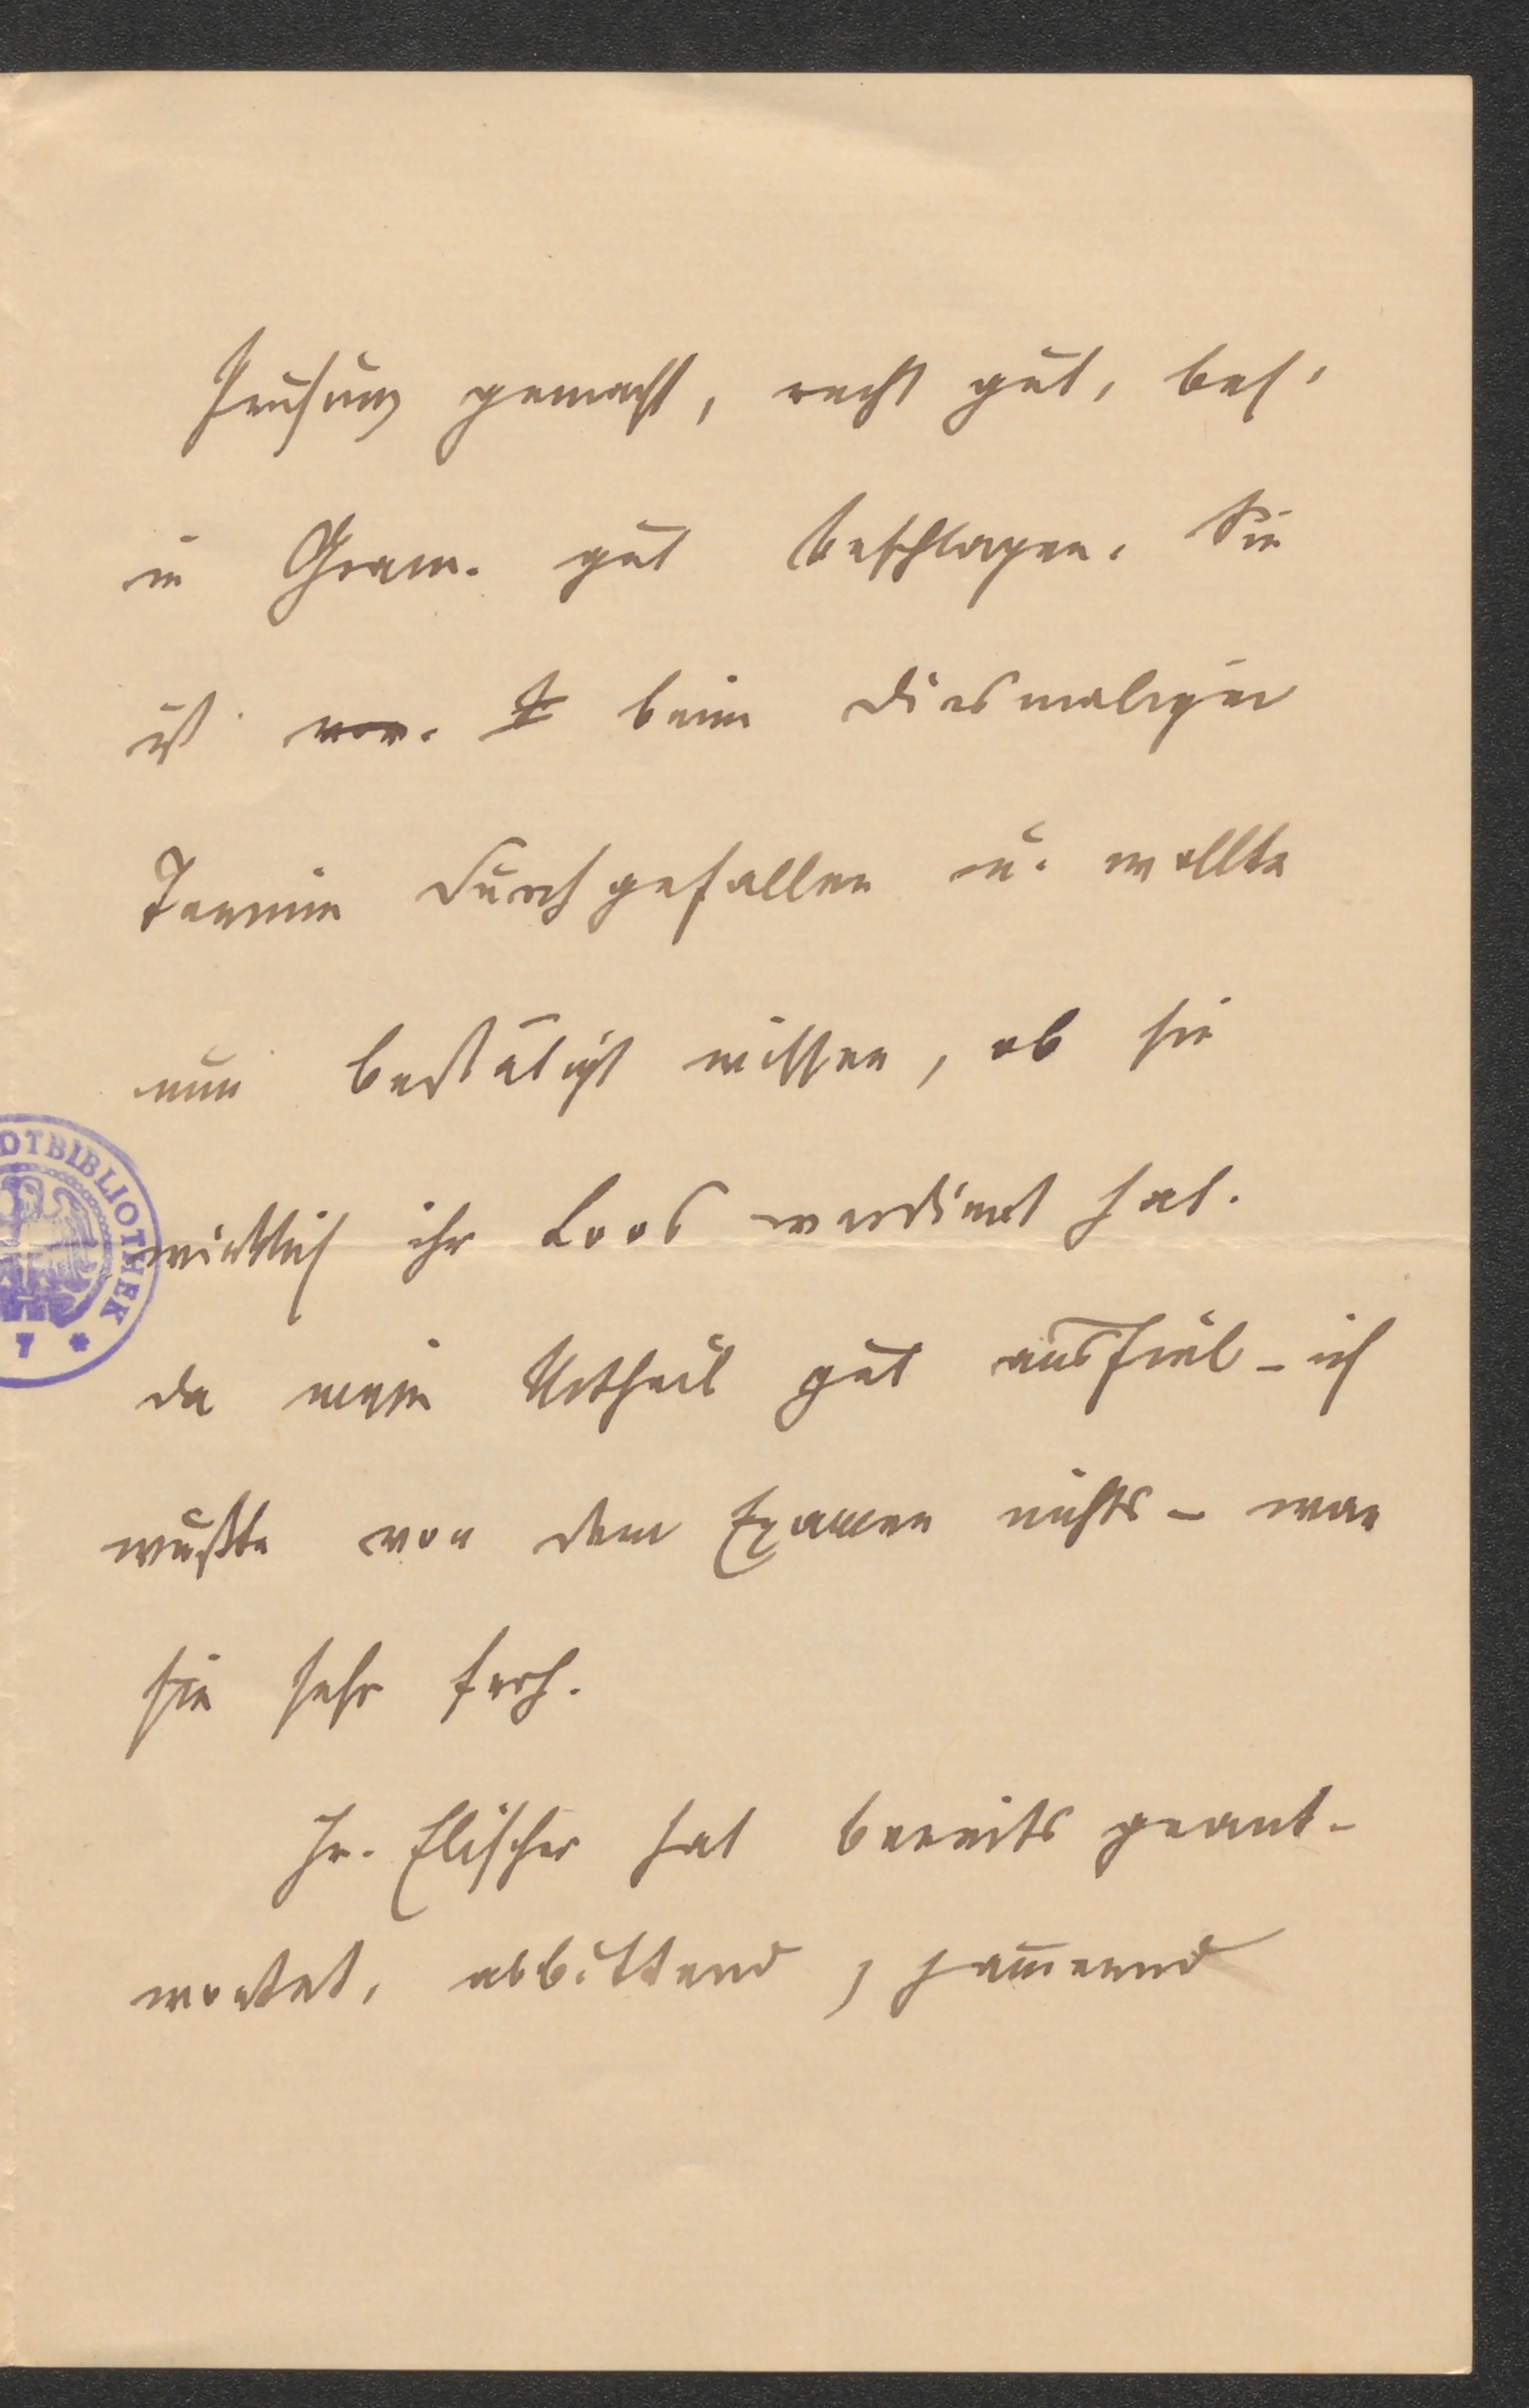 Prüfung gemacht, recht gut, bes.
in Gram. gut beschlagen. Sie
ist vor. beim diesmaligen
Termin durchgefallen u. wollte
nun bestätigt wissen, ob sie
wirklich ihr Loos verdient hat.
da mein Urtheil gut ausfiel - ich
wußte von dem Examen nichts - war
sie sehr froh.
Hr. Elischer hat bereits geant-
wortet, abbittend, jam̅ernd
DTBIBLIOTHEK
7 *